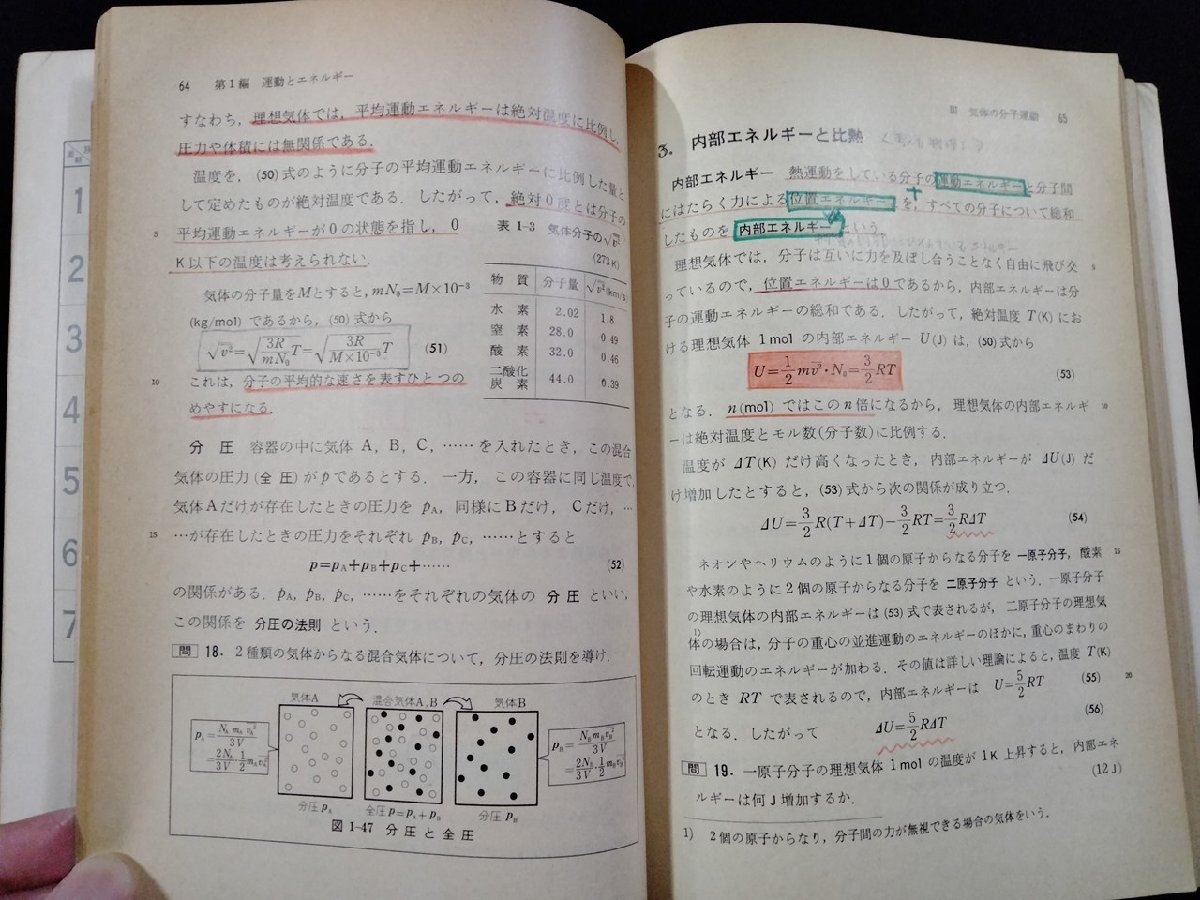 64 第1編 運動とエネルギー
すなわち，理想気体では，平均運動エネルギーは絶対温度に比例し，
圧力や体積には無関係である．
温度を，(50)式のように分子の平均運動エネルギーに比例した量と
して定めたものが絶対温度である．したがって，絶対0度とは分子の
5
平均運動エネルギーが0の状態を指し，0
K以下の温度は考えられない．
気体の分子量をMとすると，mN₀=M×10⁻³
(kg/mol) であるから，(50)式から
√v̄² = √(3R/mN₀ T) = √(3R/(M×10⁻³) T) (51)
10
これは，分子の平均的な速さを表すひとつの
めやすになる．
表 1-3 気体分子の√v̄²
(273K)
物質 分子量 √v̄²(km/s)
水素 2.02 1.8
窒素 28.0 0.49
酸素 32.0 0.46
二酸化炭素 44.0 0.39
分圧 容器の中に気体 A，B，C，……を入れたとき，この混合
気体の圧力(全圧)がpであるとする．一方，この容器に同じ温度で，
気体Aだけが存在したときの圧力を pA，同様にBだけ，Cだけ，…
15
…が存在したときの圧力をそれぞれ pB，pC，……とすると
p=pA+pB+pC+…… (52)
の関係がある．pA，pB，pC，……をそれぞれの気体の 分圧 といい，
この関係を 分圧の法則 という．
問 18. 2種類の気体からなる混合気体について，分圧の法則を導け．
気体A 混合気体A，B 気体B
pA = NA mA v̄A²/3V
= 2NA/3V · 1/2 mA v̄A²
pB = NB mB v̄B²/3V
= 2NB/3V · 1/2 mB v̄B²
分圧 pA 全圧 p=pA+pB 分圧 pB
図 1-47 分圧と全圧
気体の分子運動 65
3. 内部エネルギーと比熱
内部エネルギー 熱運動をしている分子の運動エネルギーと分子間
にはたらく力による位置エネルギーを，すべての分子について総和
+
したものを 内部エネルギー という．
理想気体では，分子は互いに力を及ぼし合うことなく自由に飛び交
5
っているので，位置エネルギーは0であるから，内部エネルギーは分
子の運動エネルギーの総和である．したがって，絶対温度 T(K) にお
ける理想気体 1mol の内部エネルギー U(J) は，(50)式から
U = 1/2 mv̄²·N₀ = 3/2 RT (53)
となる．n(mol) ではこのn倍になるから，理想気体の内部エネルギ
10
ーは絶対温度とモル数(分子数)に比例する．
温度が ΔT(K) だけ高くなったとき，内部エネルギーが ΔU(J) だ
け増加したとすると，(53)式から次の関係が成り立つ．
ΔU = 3/2 R(T+ΔT) − 3/2 RT = 3/2 RΔT (54)
ネオンやヘリウムのように1個の原子からなる分子を 一原子分子，酸素
15
や水素のように2個の原子からなる分子を 二原子分子 という．一原子分子
の理想気体の内部エネルギーは(53)式で表されるが，二原子分子の理想気
体¹⁾の場合は，分子の重心の並進運動のエネルギーのほかに，重心のまわりの
回転運動のエネルギーが加わる．その値は詳しい理論によると，温度 T(K)
のとき RT で表されるので，内部エネルギーは U = 5/2 RT (55)
20
となる．したがって ΔU = 5/2 RΔT (56)
問 19. 一原子分子の理想気体 1mol の温度が 1K 上昇すると，内部エネ
ルギーは何 J 増加するか． (12J)
1) 2個の原子からなり，分子間の力が無視できる場合の気体をいう．
1
2
3
4
5
6
7